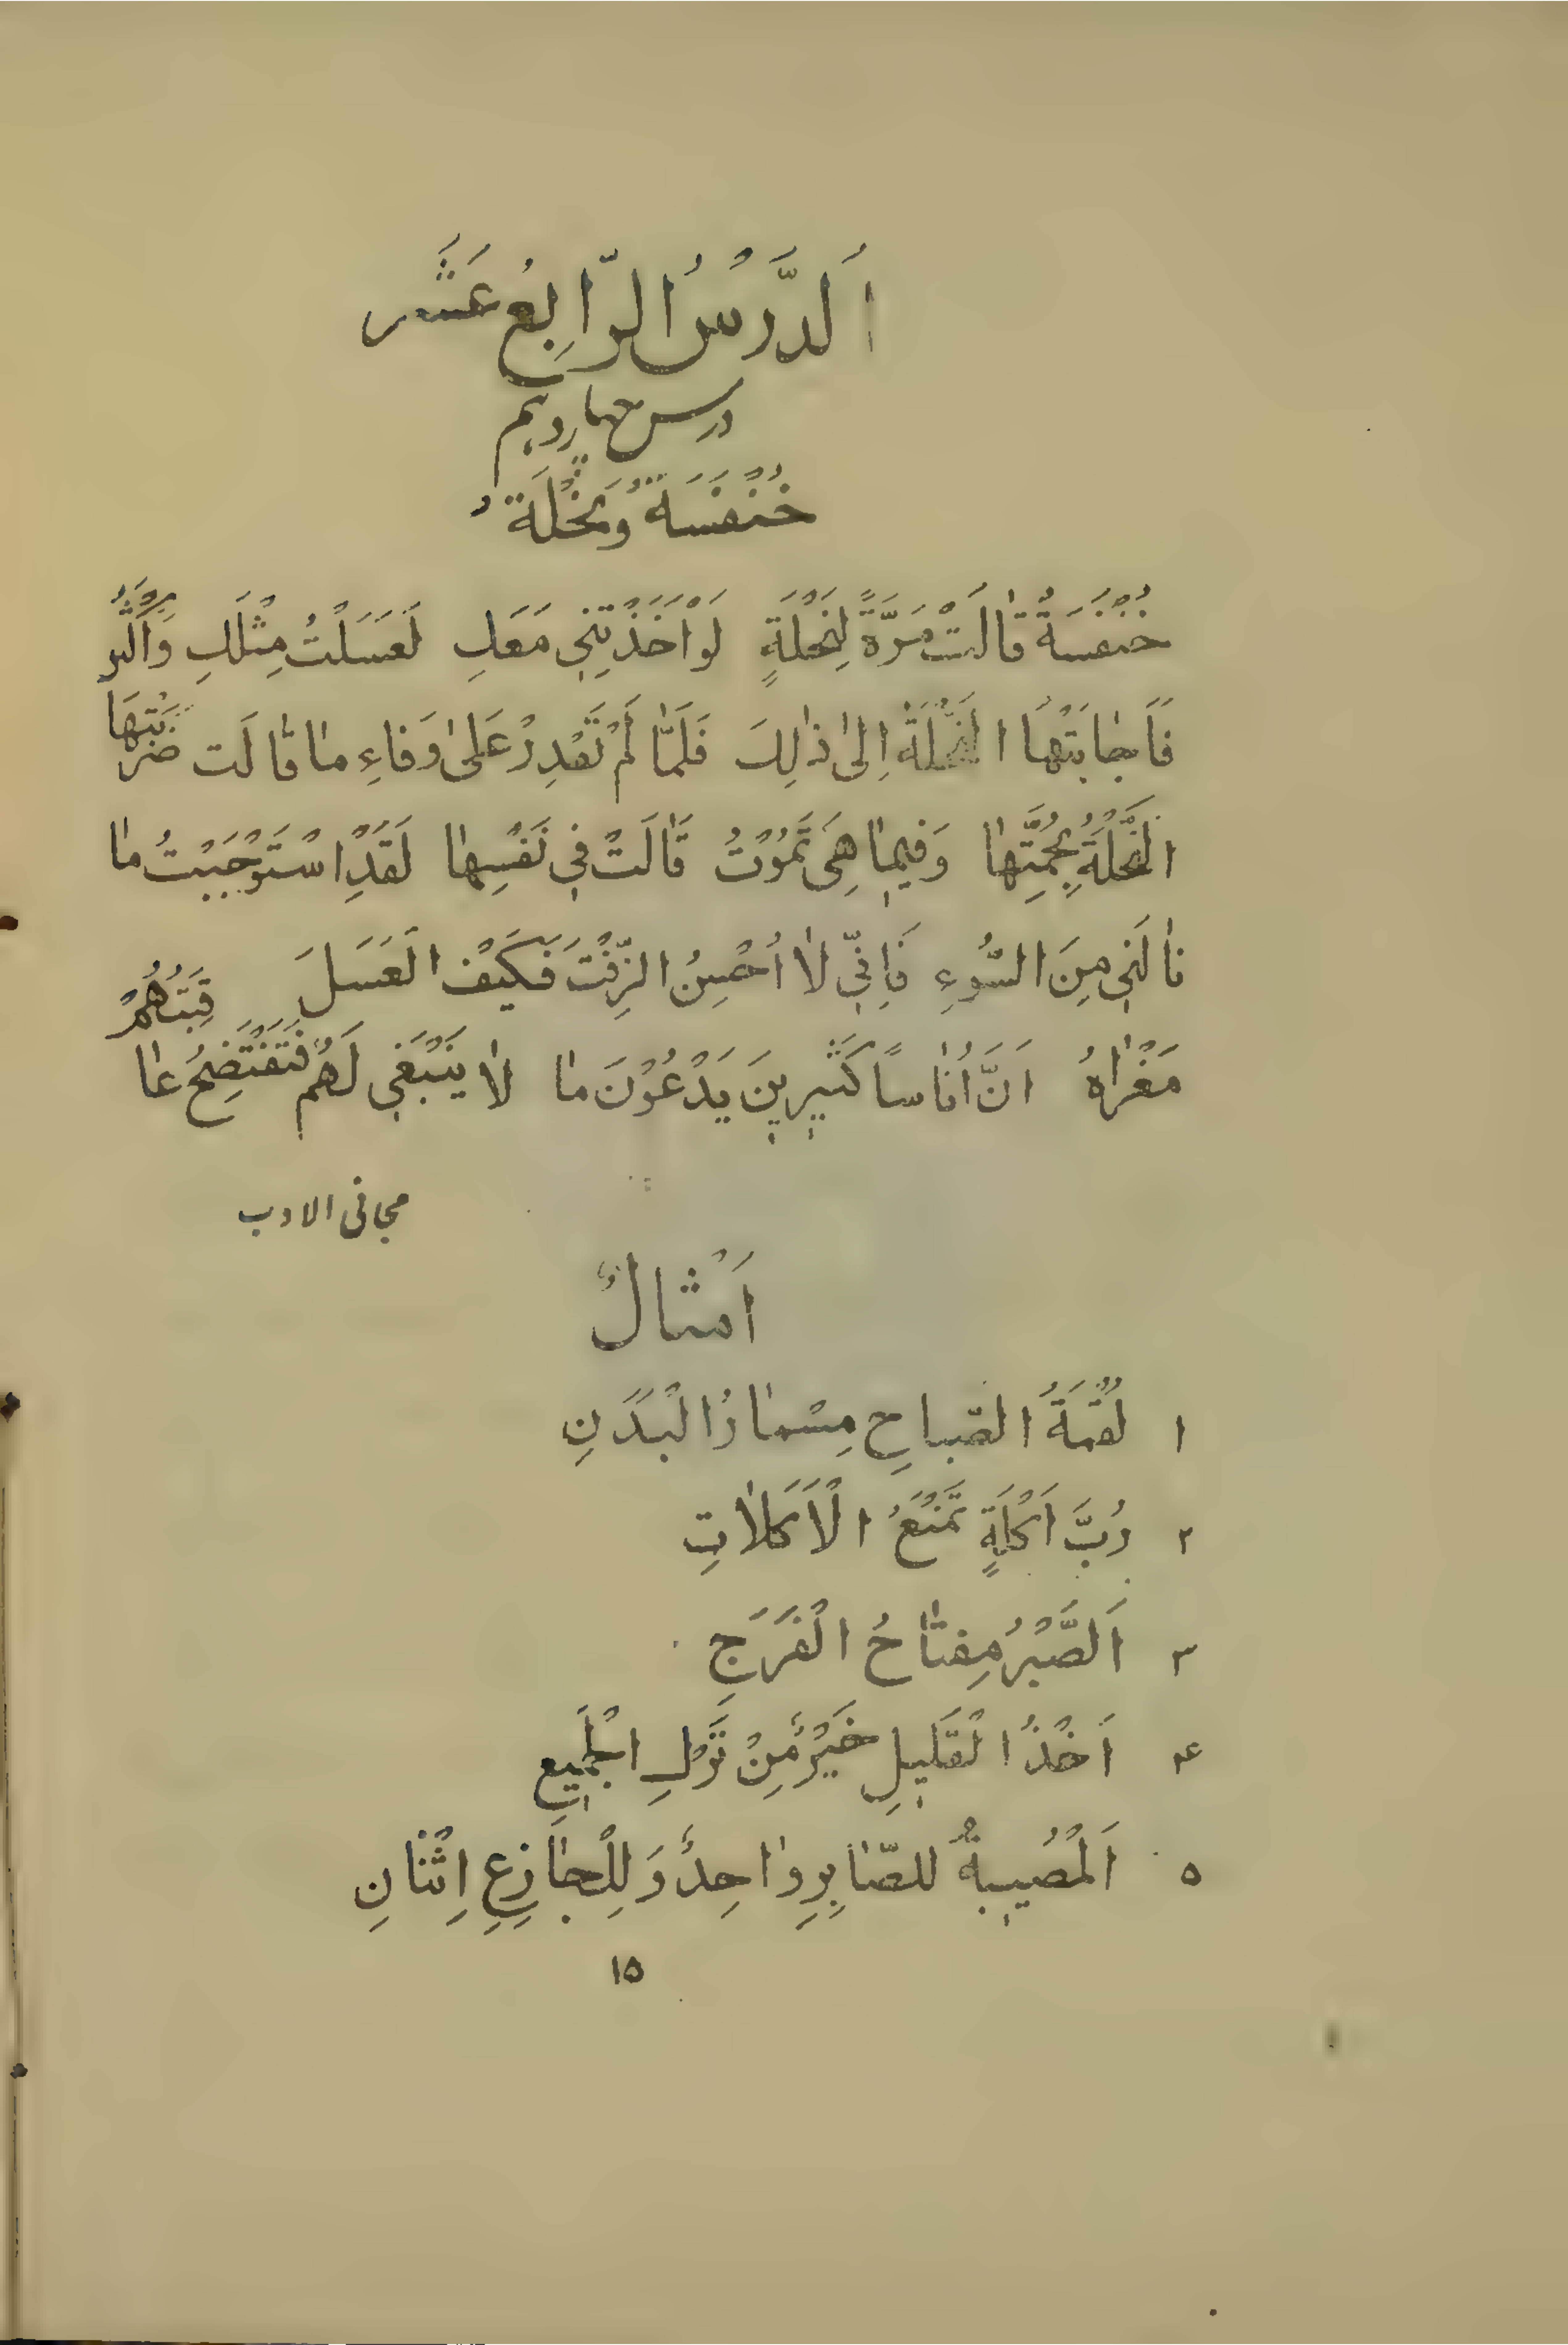 اَلدَّرْسُ الرّابِعُ عَشَر
درس چهاردهم
خُنْفَسَةٌ وَنَحْلَةٌ
خُنْفَسَةٌ قٰالَتْ مَرَّةً لِنَحْلَةٍ لَوْ اَخَذْتِنِي مَعَكِ لَعَسَلْتُ مِثْلَكِ وَاَكْثَرَ
فَاَجٰابَتْهَا النَّحْلَةُ اِلىٰ ذٰلِكَ فَلَمّٰا لَمْ تَقْدِرْ عَلىٰ وَفاءِ مٰا قٰالَت ضَرَبَتْهَا
النَّحْلَةُ بِحُمَّتِهٰا وَفيمٰا هِىَ تَمُوْتُ قٰالَتْ في نَفْسِهٰا لَقَدِ اسْتَوْجَبْتُ مٰا
نٰالَني مِنَ السُّوءِ فَاِنّي لاٰ اُحْسِنُ الزِّفْتَ فَكَيْفَ الْعَسَلَ
مَغْزٰاهُ اَنَّ اُنٰاسًا كَثيرينَ يَدْعُوْنَ مٰا لاٰ يَنْبَغي لَهُمْ فَتَفْتَضِحُ عٰاقِبَتُهُمْ
مجانى الادب
اَمْثالٌ
١ لُقْمَةُ الصّباحِ مِسْمٰارُ الْبَدَنِ
٢ رُبَّ اَكْلَةٍ تَمْنَعُ الْاَكَلاٰتِ
٣ اَلصَّبْرُ مِفتٰاحُ الْفَرَجِ
۴ اَخْذُ الْقَليلِ خَيْرٌ مِنْ تَرْكِ الْجَميعِ
۵ اَلْمُصيبةُ للصّٰابِرِ وٰاحِدٌ وَلِلْجٰازِعِ اِثْنٰانِ
١۵